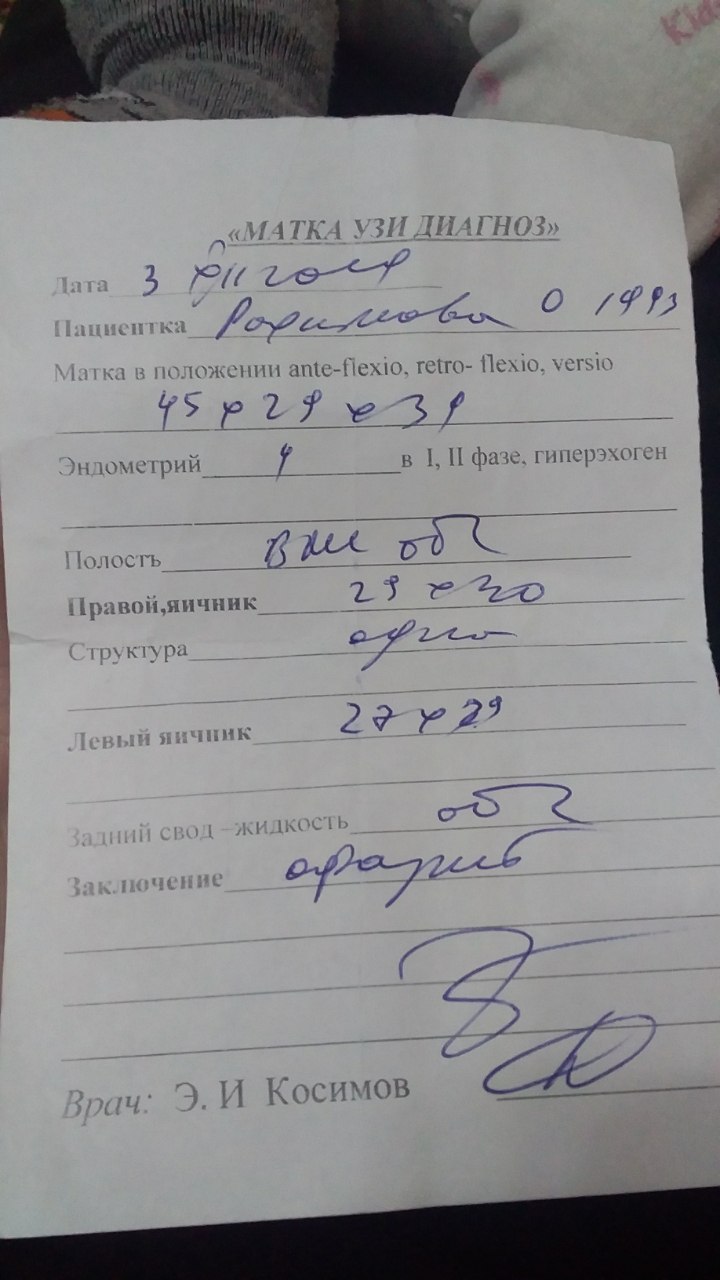 Kid
«МАТКА УЗИ ДИАГНОЗ»
Дата 3
Пациентка О 1993
Матка в положении ante-flexio, retro- flexio, versio
45 х 29 х 39
Эндометрий 4 в I, II фазе, гиперэхоген
Полость обч
Правой,яичник 29 х 20
Структура
Левый яичник 27 х 29
Задний свод –жидкость обч
Заключение
Врач: Э. И Косимов